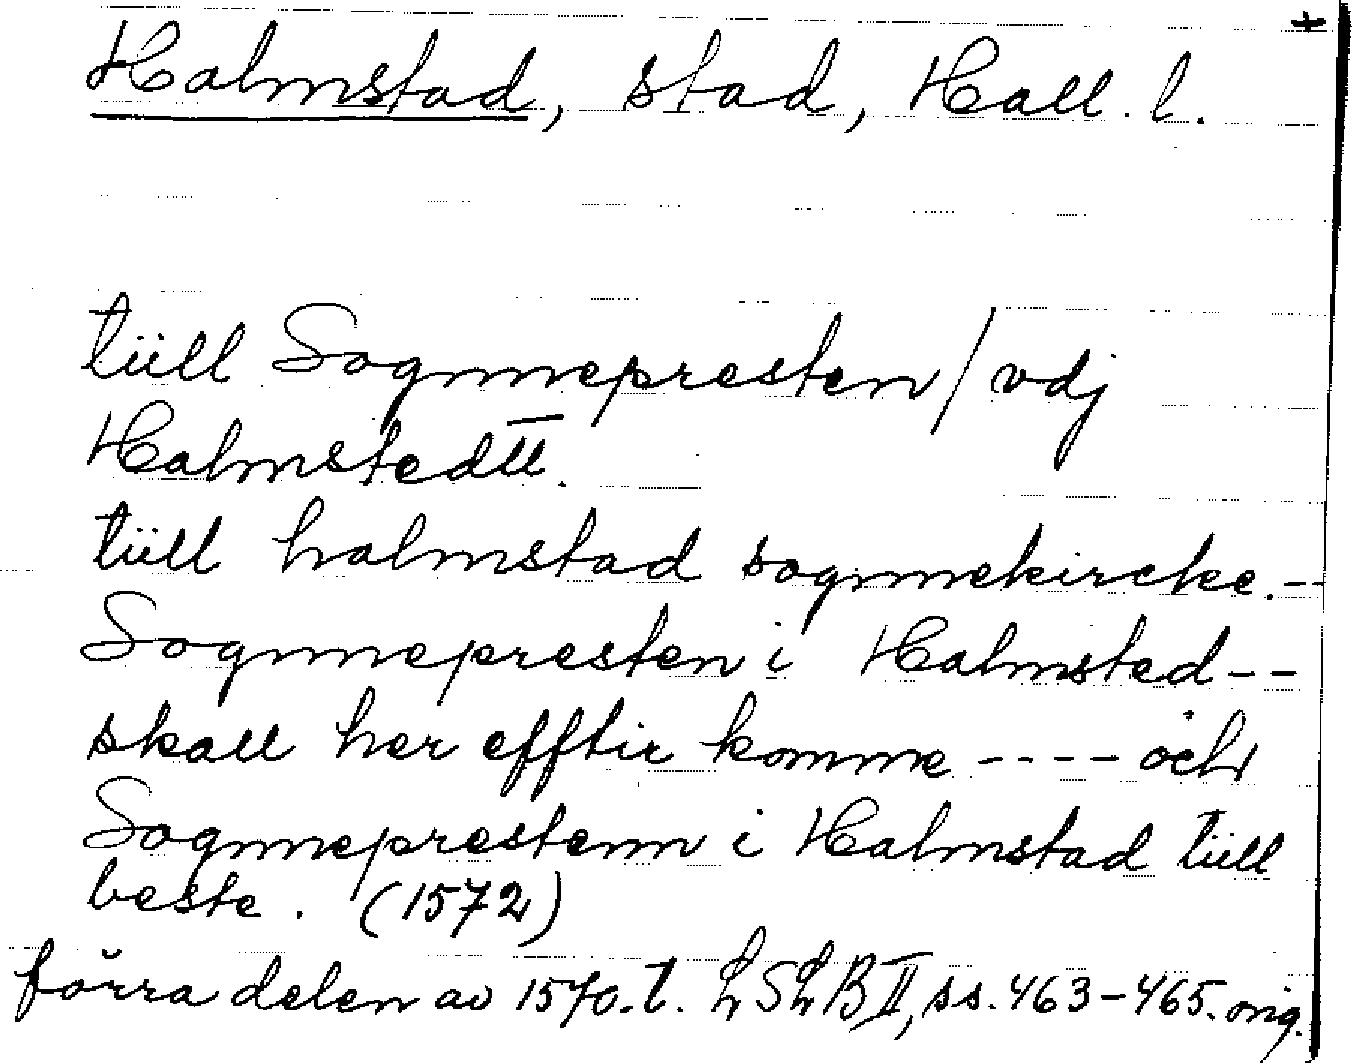 +
Halmstad, stad, Hall. l.
tiill Sognnepresten/vdj
Halmstedtt.
tiill halmstad sognnekircke.--
Sognnepresten i Halmsted--
skall her efftir komme ---- och
Sognneprestenn i Halmstad tiill
beste. (1572)
förra delen av 1570.t. LSLB II, ss. 463-465. orig.